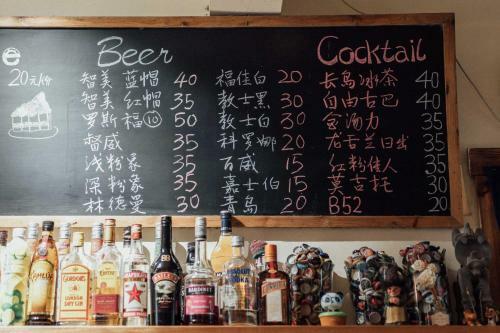 Beer
Cocktail
20元/份
智美 蓝帽 40
智美 红帽 35
罗斯福⑩ 50
督威 35
浅粉象 35
深粉象 35
林德曼 30
福佳白 20
教士黑 30
教士白 30
科罗娜 20
百威 15
嘉士伯 15
青岛 20
长岛冰茶 40
自由古巴 40
金汤力 35
龙舌兰日出 35
红粉佳人 35
莫吉托 30
B52 20
GORDON'S
LONDON DRY GIN
BAILEYS
BARDINET
ABSOLUT
VODKA